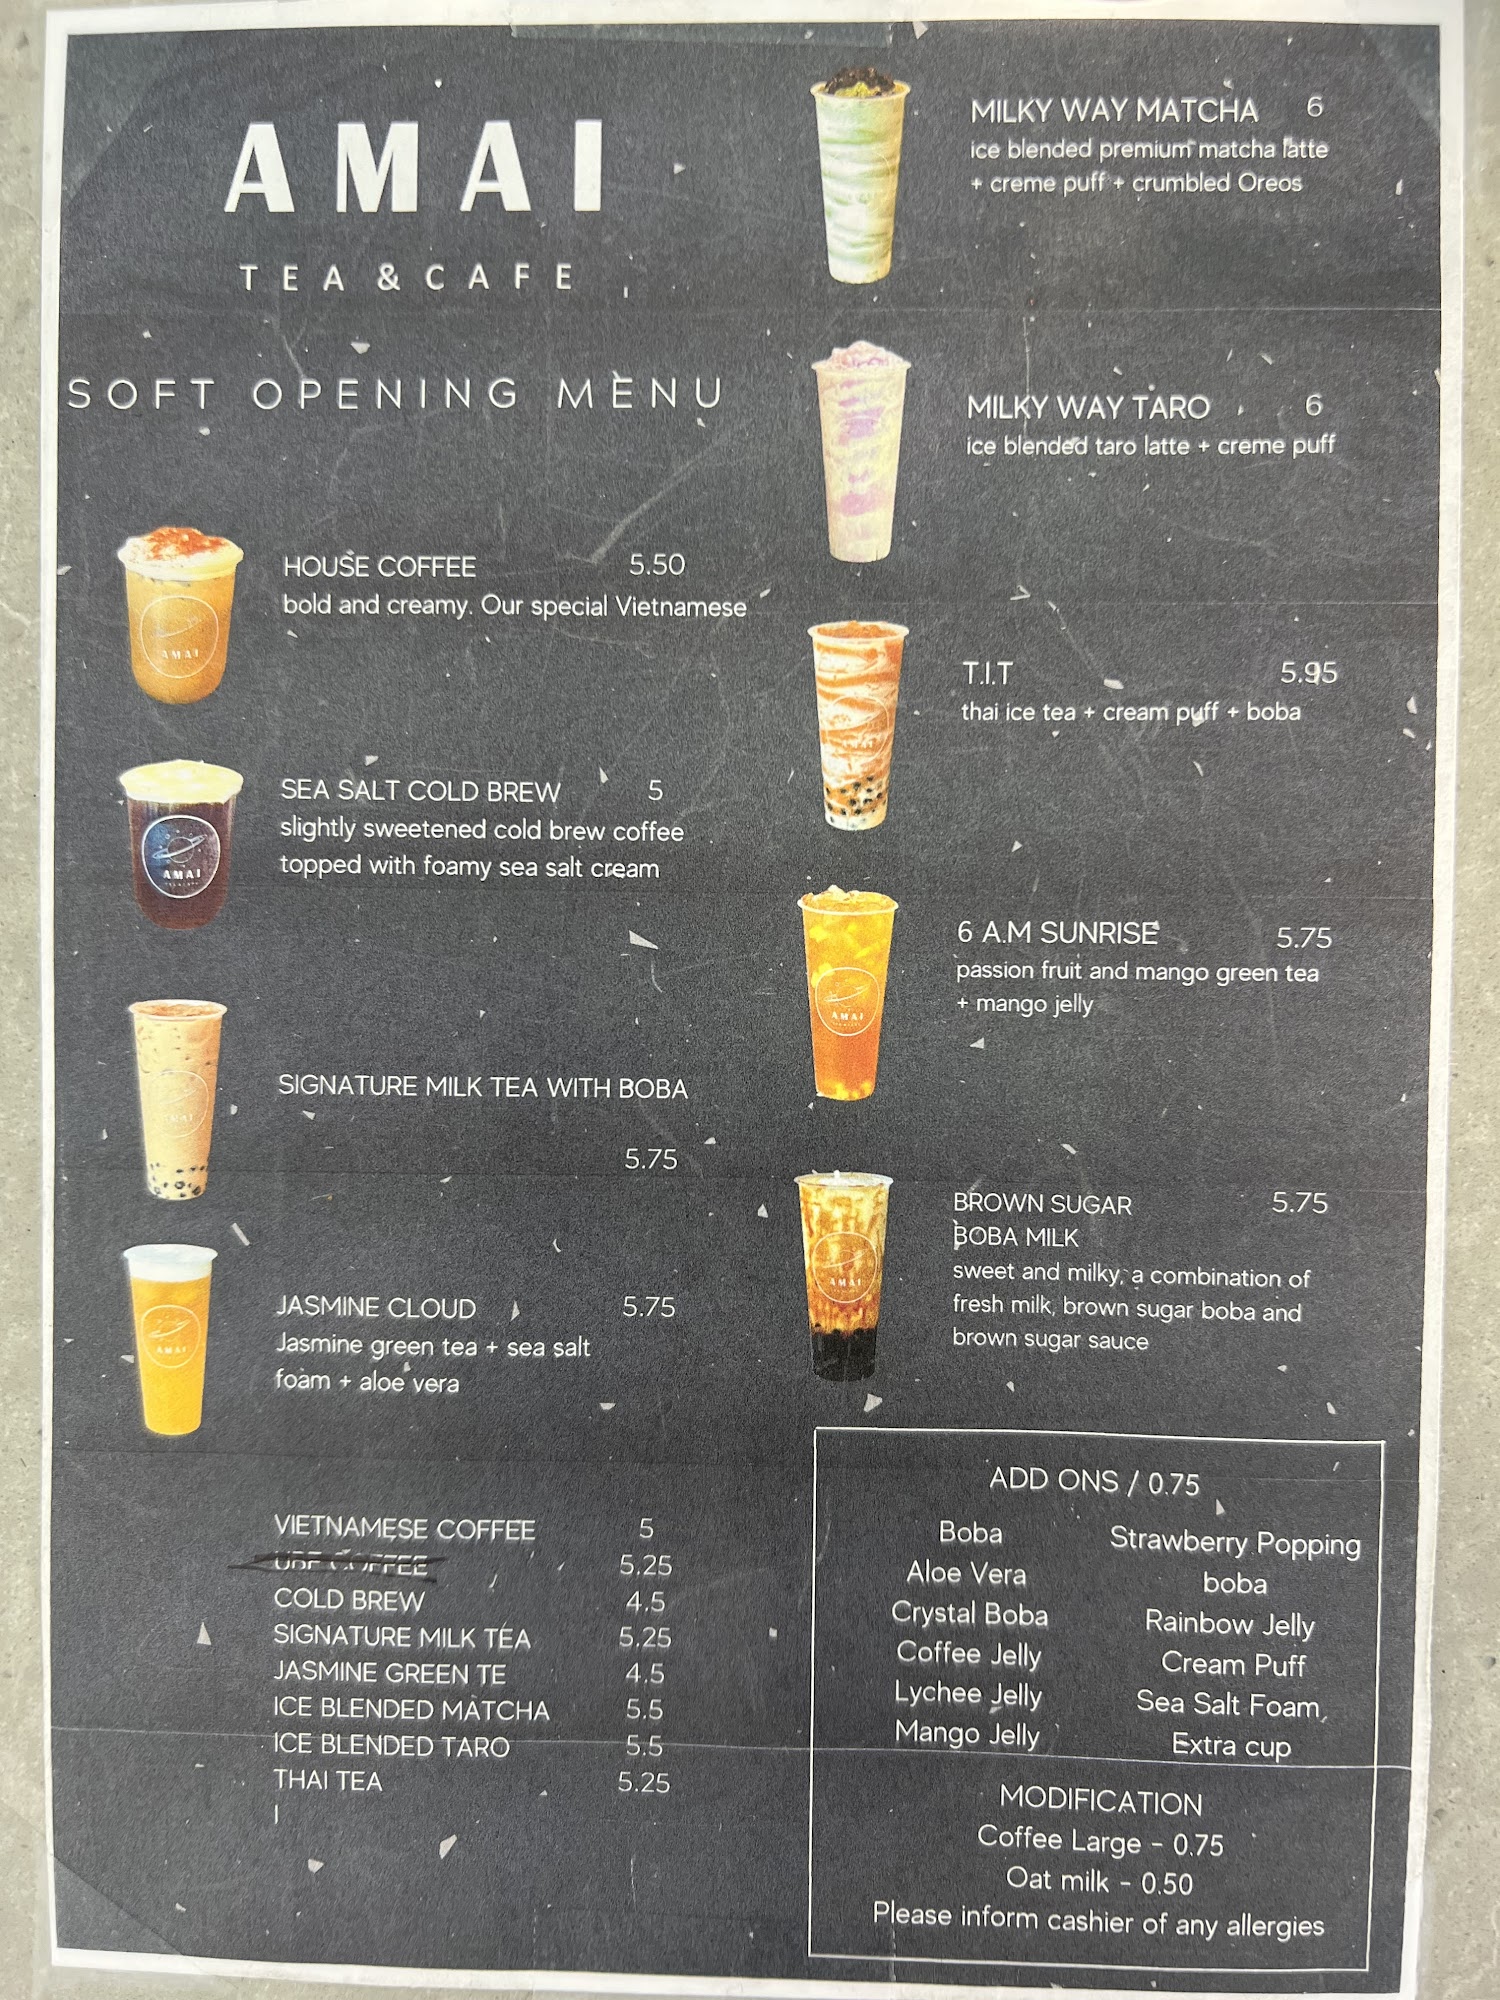 AMAI
TEA & CAFE
SOFT OPENING MENU
HOUSE COFFEE 5.50
bold and creamy. Our special Vietnamese
SEA SALT COLD BREW 5
slightly sweetened cold brew coffee
topped with foamy sea salt cream
SIGNATURE MILK TEA WITH BOBA
5.75
JASMINE CLOUD 5.75
Jasmine green tea + sea salt
foam + aloe vera
VIETNAMESE COFFEE 5
UBE COFFEE 5.25
COLD BREW 4.5
SIGNATURE MILK TEA 5.25
JASMINE GREEN TE 4.5
ICE BLENDED MATCHA 5.5
ICE BLENDED TARO 5.5
THAI TEA 5.25
MILKY WAY MATCHA 6
ice blended premium matcha latte
+ creme puff + crumbled Oreos
MILKY WAY TARO 6
ice blended taro latte + creme puff
T.I.T 5.95
thai ice tea + cream puff + boba
6 A.M SUNRISE 5.75
passion fruit and mango green tea
+ mango jelly
BROWN SUGAR 5.75
BOBA MILK
sweet and milky, a combination of
fresh milk, brown sugar boba and
brown sugar sauce
ADD ONS / 0.75
Boba
Aloe Vera
Crystal Boba
Coffee Jelly
Lychee Jelly
Mango Jelly
Strawberry Popping
boba
Rainbow Jelly
Cream Puff
Sea Salt Foam
Extra cup
MODIFICATION
Coffee Large - 0.75
Oat milk - 0.50
Please inform cashier of any allergies
AMAI
AMAI
AMAI
AMAI
AMAI
AMAI
AMAI